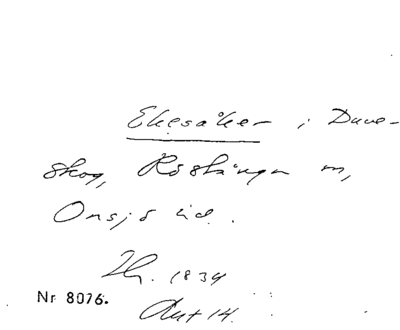 Ekesåker i Duve-
skog, Röstånga sn,
Onsjö hd.
Th. 1834
Nr 8076.
Akt 14.